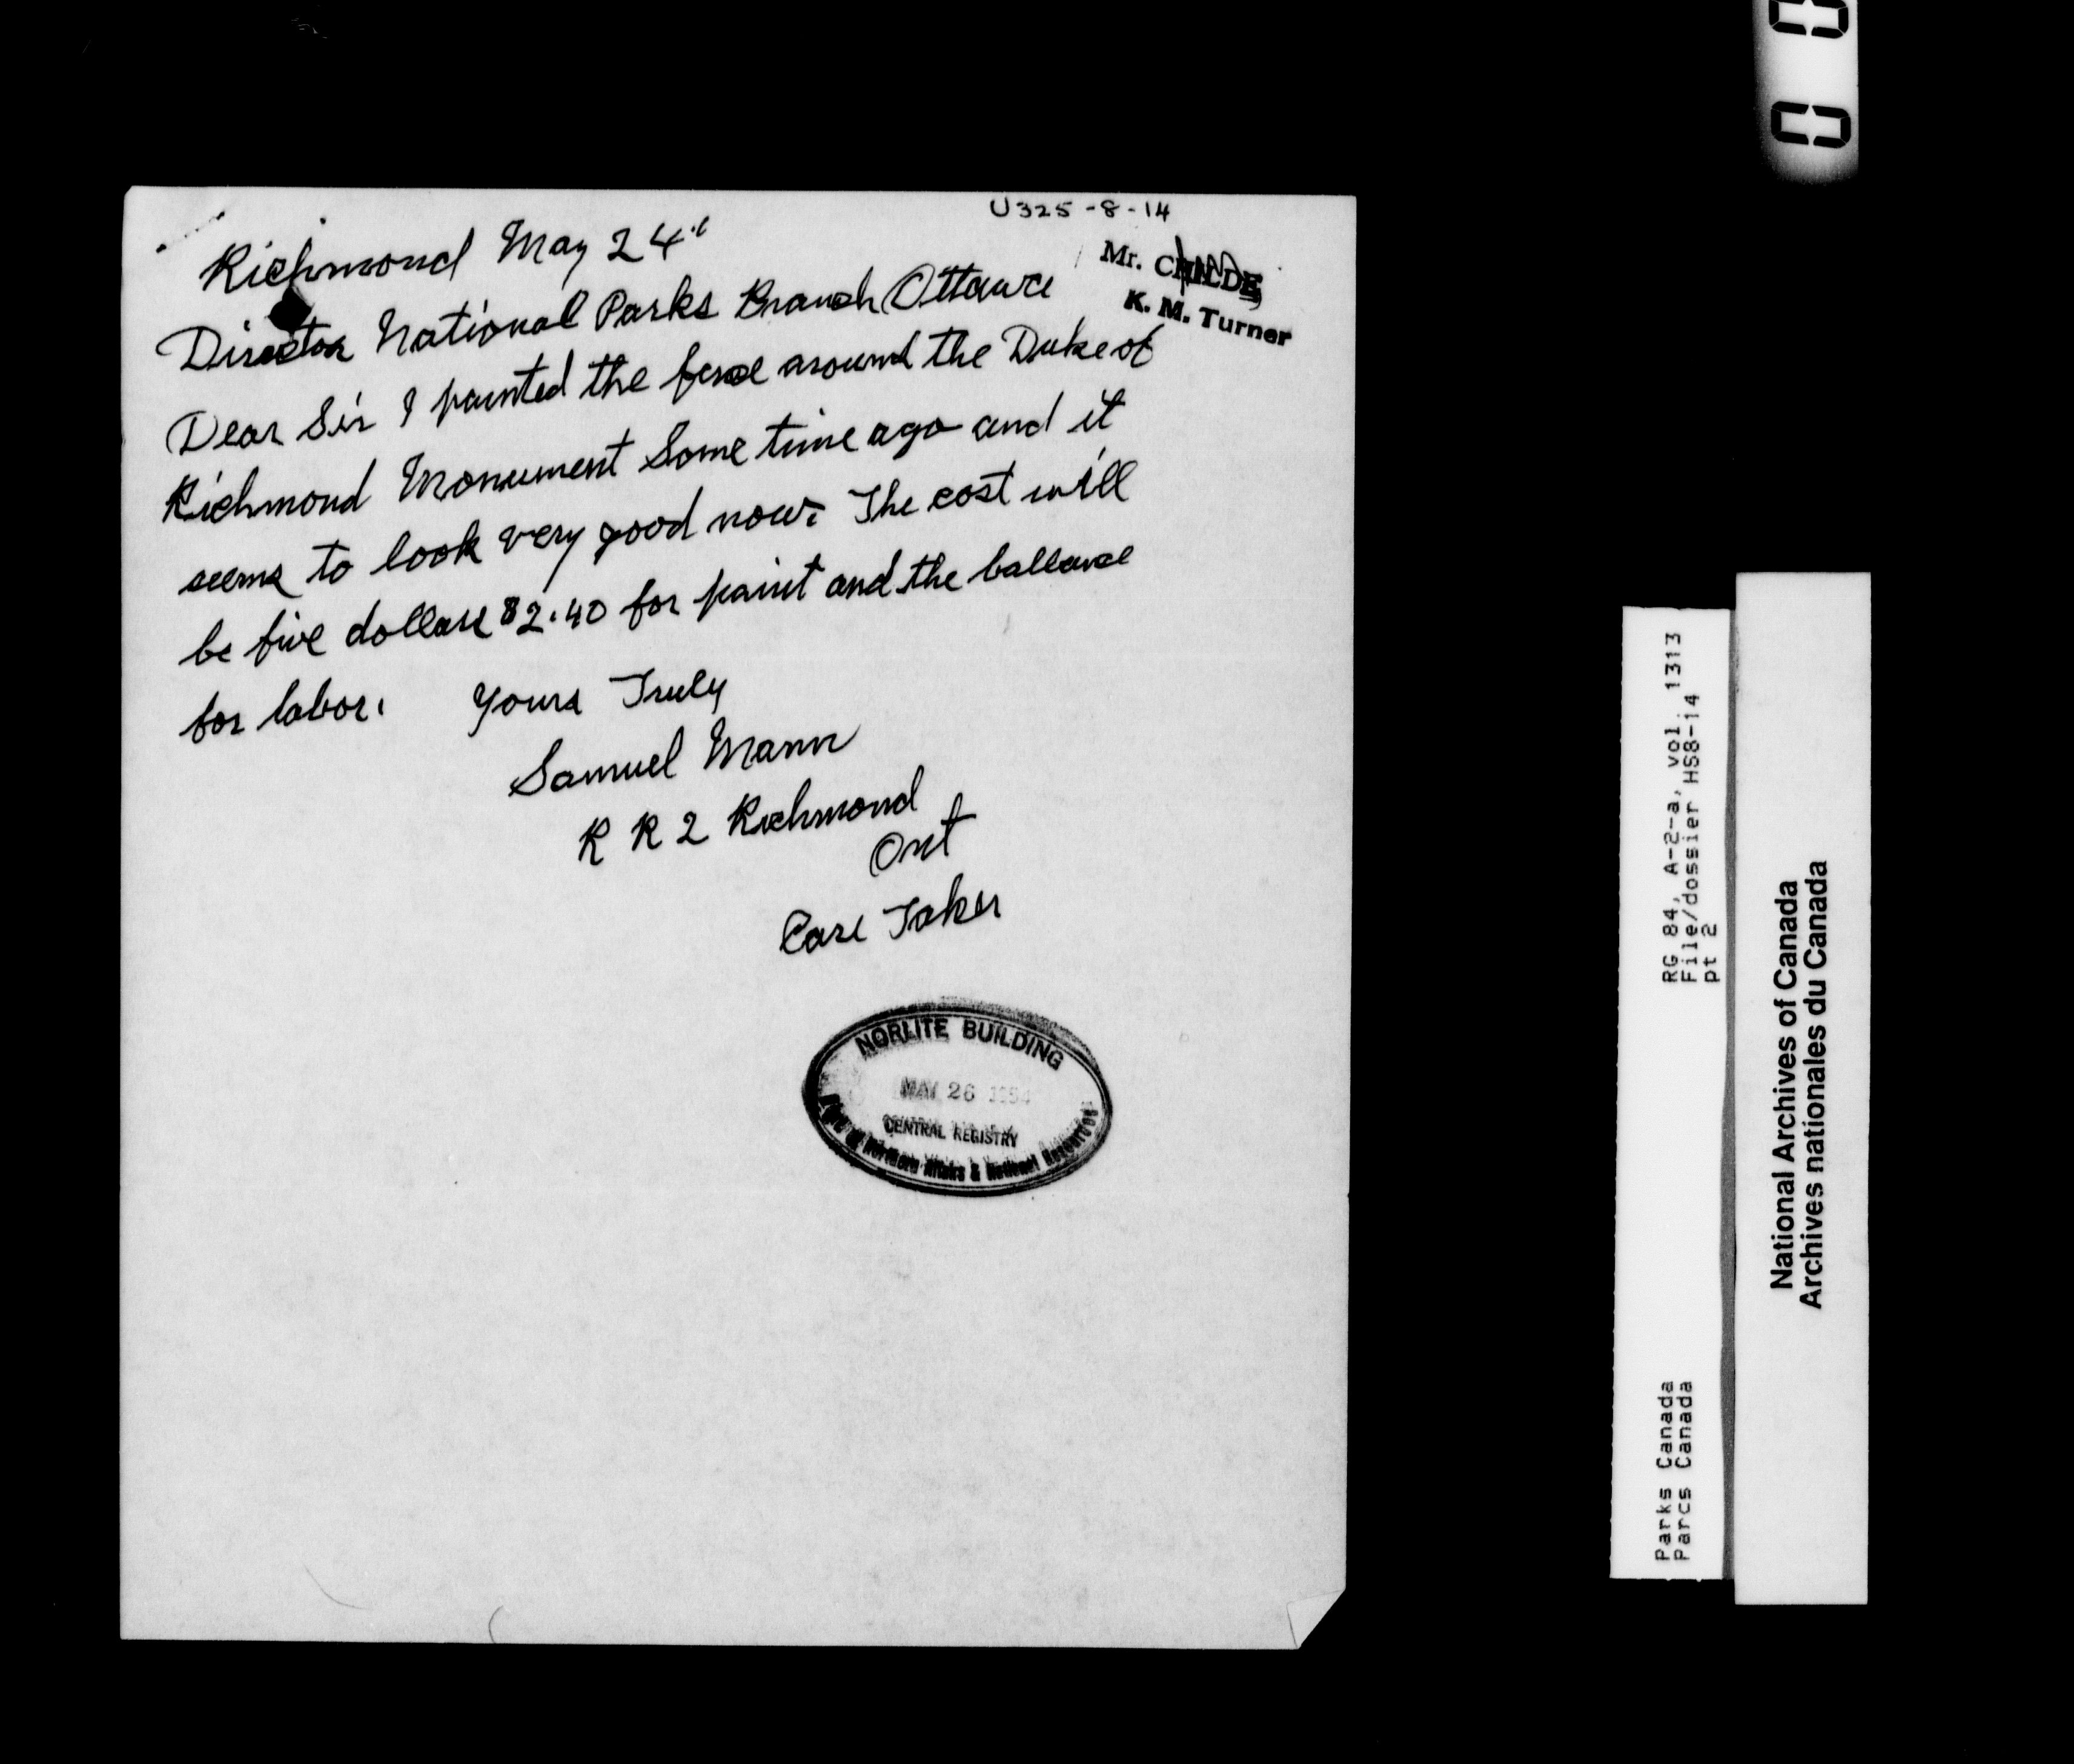 U325-8-14
Mr. CHILDE
K. M. Turner
Richmond May 24
Director National Parks Branch Ottawa
Dear Sir I painted the fence around the Duke of
Richmond Monument Some time ago and it
seems to look very good now. The cost will
be five dollars $2.40 for paint and the ballance
for labor. Yours Truly
Samuel Mann
R R 2 Richmond
Ont
Care Taker
NORLITE BUILDING
MAY 26 1954
CENTRAL REGISTRY
Dept. of Northern Affairs & National Resources
RG 84, A-2-a, vol. 1313
File/dossier HS8-14
pt 2
Parks Canada
Parcs Canada
National Archives of Canada
Archives nationales du Canada